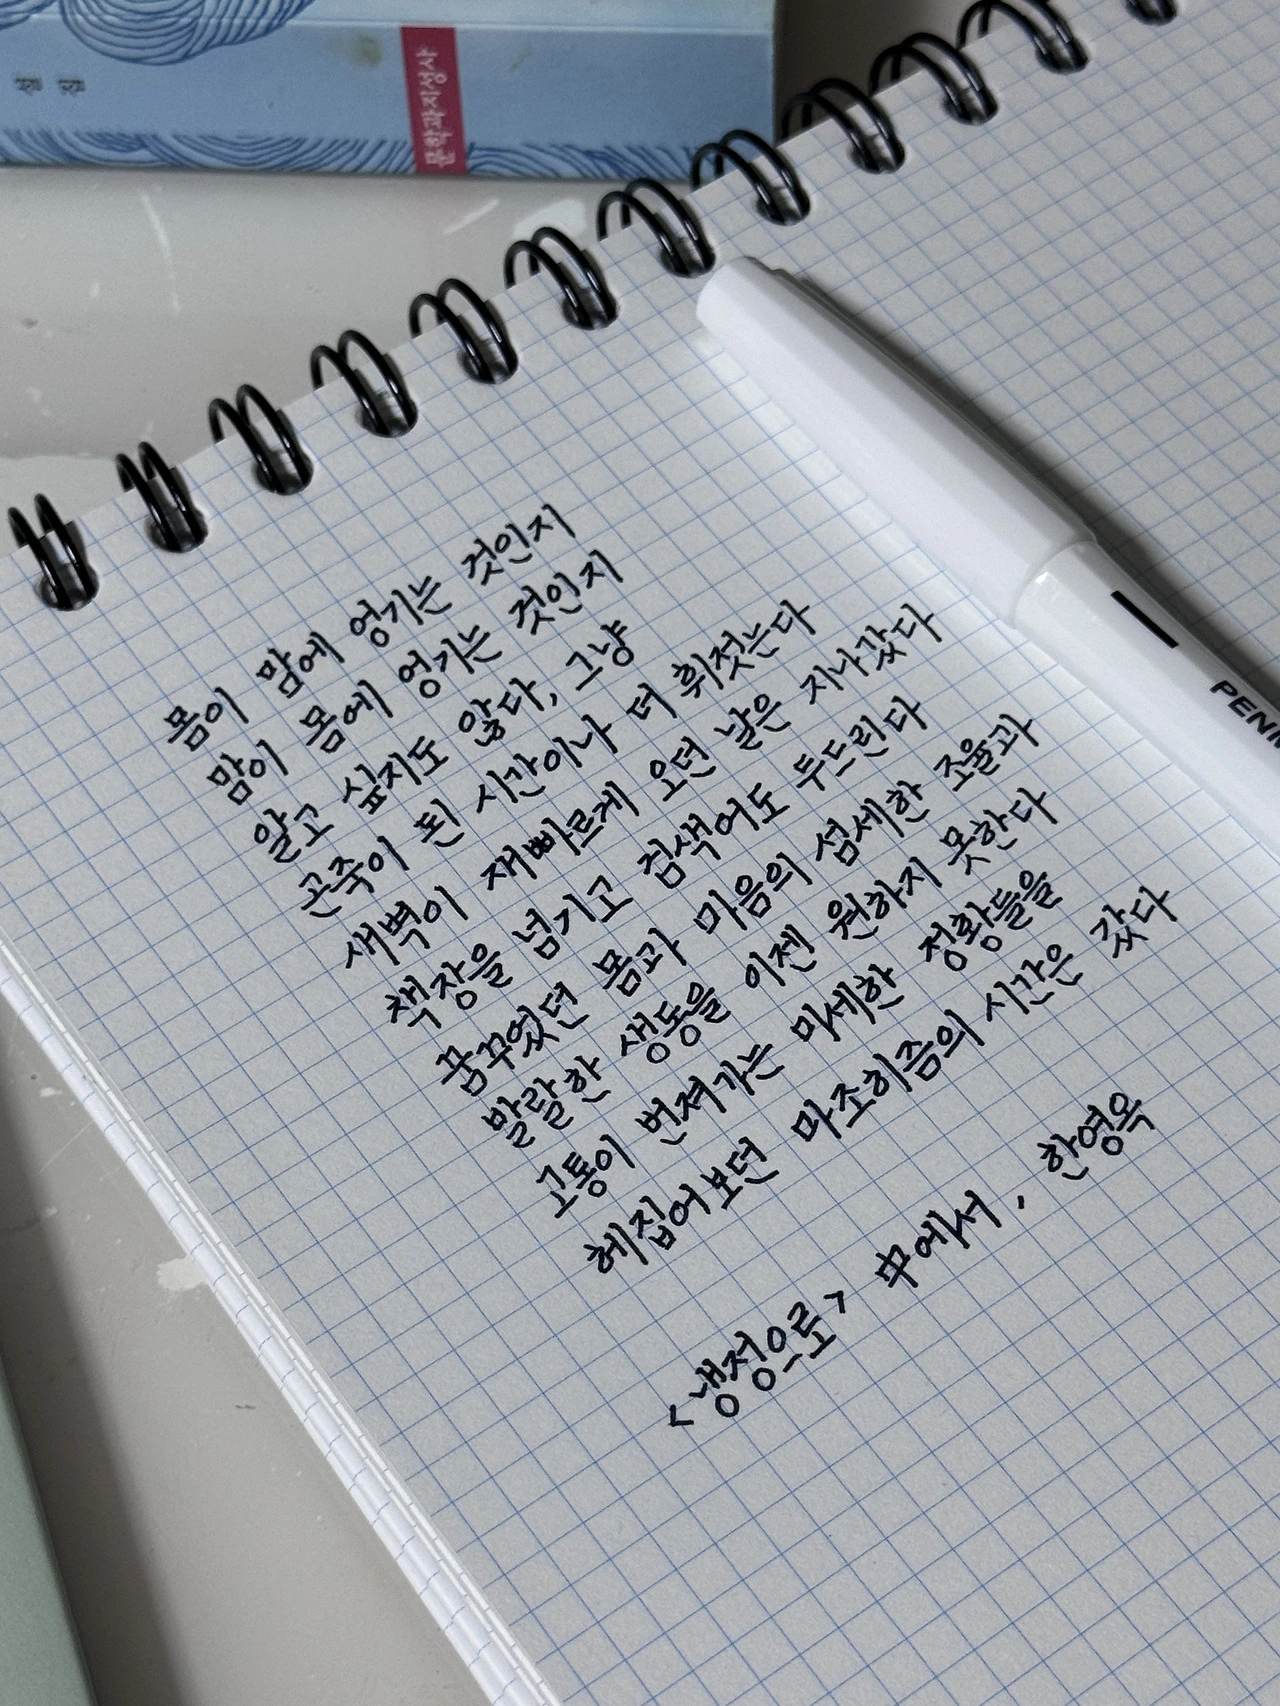 문학과지성사
몸이 맘에 엉기는 것인지
맘이 몸에 엉기는 것인지
알고 싶지도 않다, 그냥
곤죽이 된 시간이나 더 휘젓는다
새벽이 재빠르게 오던 날은 지나갔다
책장을 넘기고 검색어도 두드린다
꿈꾸었던 몸과 마음의 섬세한 조율과
발랄한 생동을 이젠 원하지 못한다
고통이 번져가는 미세한 정황들을
헤집어보던 마조히즘의 시간은 갔다
<냉정으로> 中에서, 한영옥